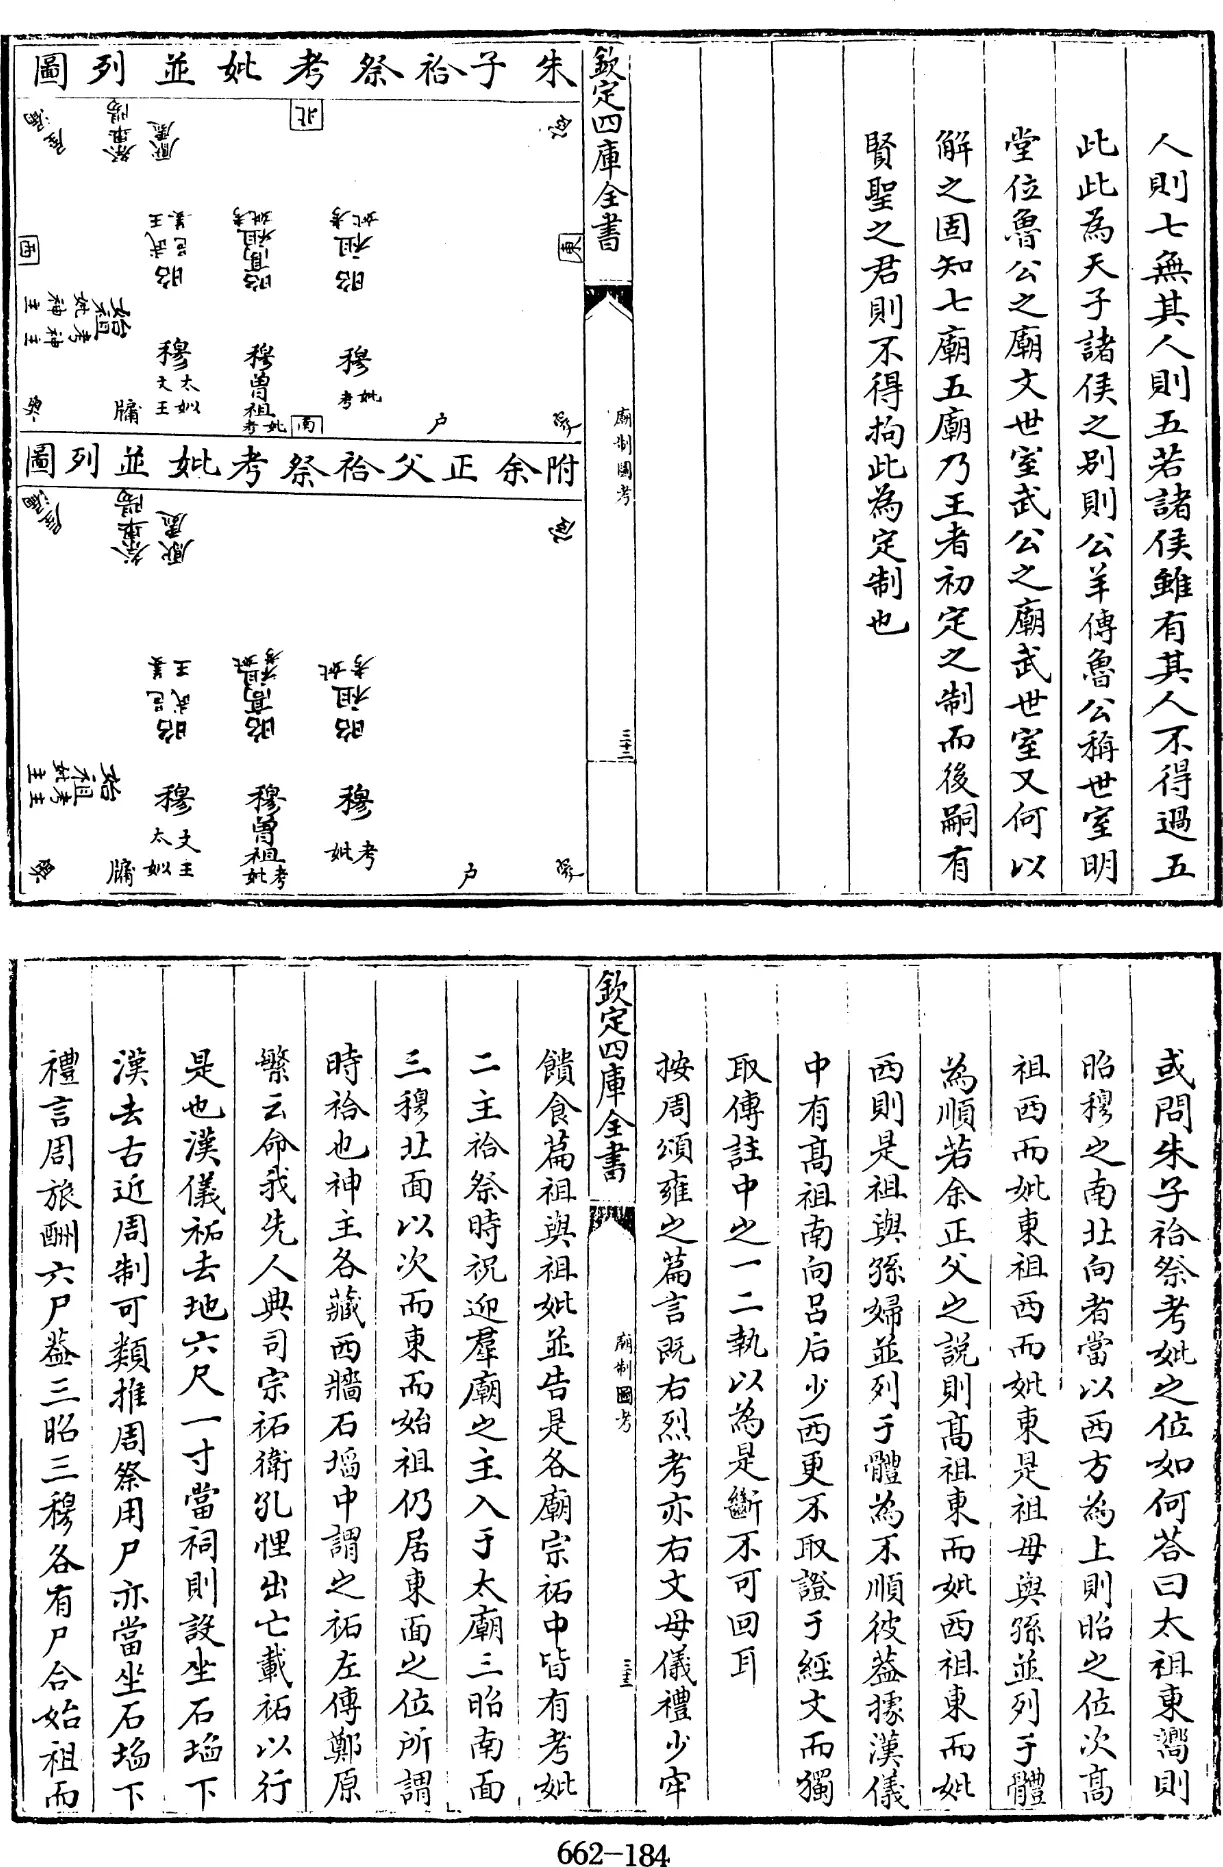 人則七無其人則五若諸侯雖有其人不得過五
此此為天子諸侯之别則公羊傳魯公稱世室明
堂位魯公之廟文世室武公之廟武世室又何以
解之固知七廟五廟乃王者初定之制而後嗣有
賢聖之君則不得拘此為定制也
欽定四庫全書
廟制圖考
三十二
朱子祫祭考妣並列圖
北
東
西
南
昭 祖 考妣
昭 高祖 考妣
昭 武王 邑姜
始祖
考神主
妣神主
穆 考妣
穆 曾祖 考妣
穆 文王 太姒
戶
牖
附余正父祫祭考妣並列圖
昭 祖 考妣
昭 高祖 考妣
昭 武王 邑姜
始祖
考主
妣主
穆 考妣
穆 曾祖 考妣
穆 文王 太姒
戶
牖
或問朱子祫祭考妣之位如何荅曰太祖東嚮則
昭穆之南北向者當以西方為上則昭之位次髙
祖西而妣東祖西而妣東是祖母與孫並列于體
為順若余正父之説則髙祖東而妣西祖東而妣
西則是祖與孫婦並列于體為不順彼葢據漢儀
中有髙祖南向吕后少西更不取證于經文而獨
取傳註中之一二執以為是斷不可回耳
按周頌雍之篇言既右烈考亦右文母儀禮少牢
欽定四庫全書
廟制圖考
三十三
饋食篇祖與祖妣並告是各廟宗祏中皆有考妣
二主祫祭時祝迎羣廟之主入于太廟三昭南面
三穆北面以次而東而始祖仍居東面之位所謂
時祫也神主各藏西牆石塪中謂之祏左傳鄭原
繁云命我先人典司宗祏衛孔悝出亡載祏以行
是也漢儀祏去地六尺一寸當祠則設坐石塪下
漢去古近周制可類推周祭用尸亦當坐石塪下
禮言周旅酬六尸葢三昭三穆各有尸合始祖而
662-184